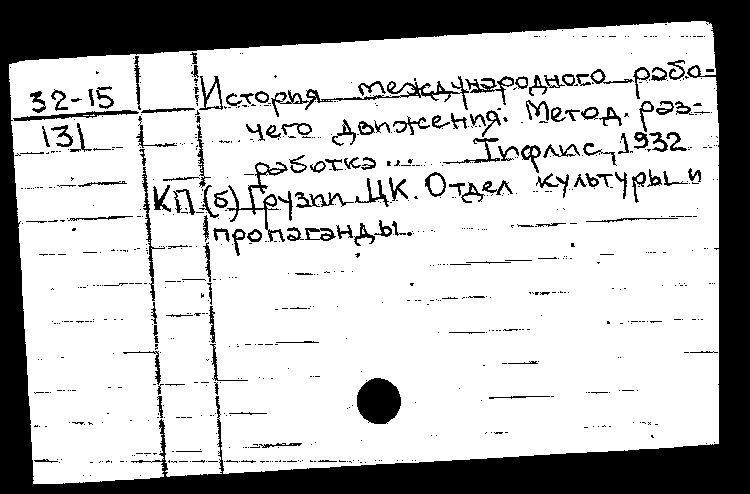 32-15
131
История международного рабо=
чего движения. Метод. раз-
работка... Тифлис, 1932
КП(б) Грузии. ЦК. Отдел культуры и
пропаганды.